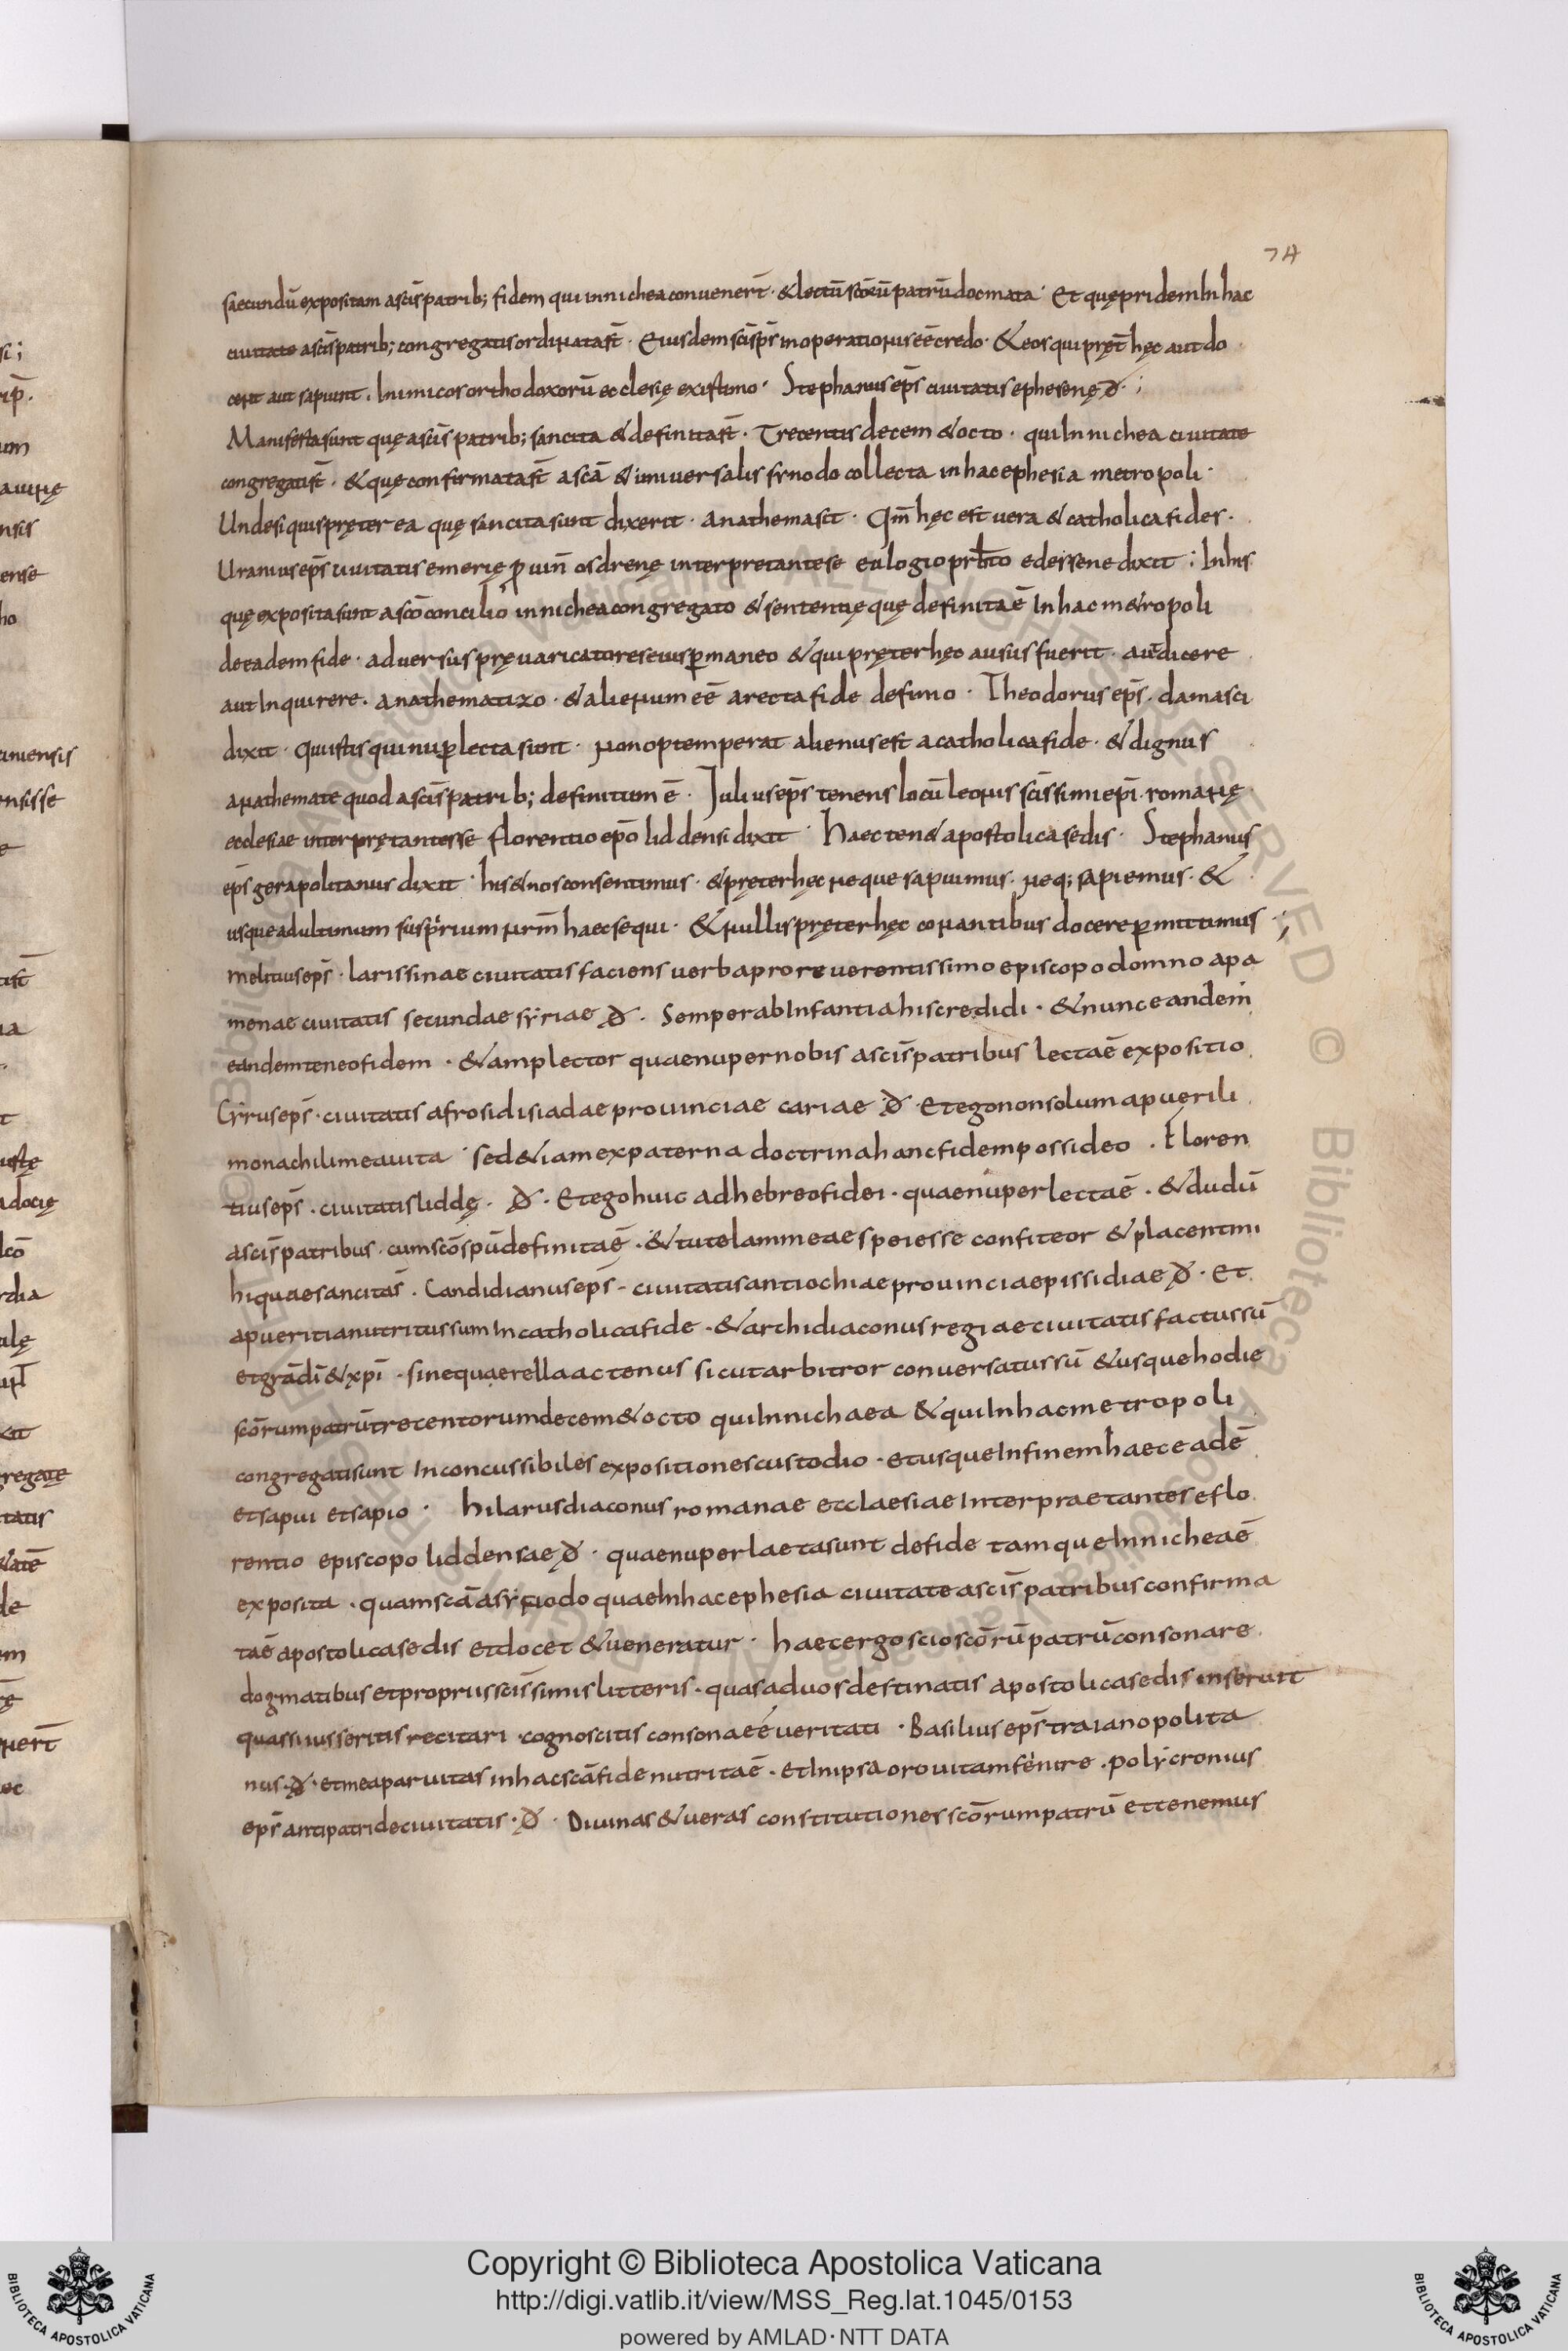 74
saecundū expositam a scīs patrib; fidem qui in nichea convenerт̄ · & lectū scōrū patrū docmata · Et quę pridem In hac
civitate a scīs patrib; congregatis ordinata sт̄ · Eiusdem scī sp̄s in operationis eē credo · & eos qui pręт̄ hęc aut do
cent aut sapiunt . Inimicos orthodoxorū ecclesię existimo · Stephanus ep̄s civitatis ephesenę đ · ;
Manifesta sunt quę a scīs patrib; sancita & definita sт̄ · Trecentis decem & octo · qui In nichea civitate
congregati sт̄ · & quę confirmata sт̄ a scā & universalis synodo collecta in hac ephesia metropoli ·
Unde si quis pręter ea quę sancita sunt dixerit · anathema sit · Qm̄ hęc est vera & catholica fides ·
Uranius ep̄s civitatis emerię ꝓuin̄ osdrenę interpretante se eulogio prb̄to edessene dixit ; In his
quę exposita sunt a scō concilio in nichea congregato & sententię quę definita ē In hac m&ropoli
de eadem fide · adversus pręvaricatores eius ꝑmaneo & qui pręter hęc ausus fuerit · aut̄ dicere
aut Inquirere . anathematizo · & alienum eē a recta fide definio · Theodorus ep̄s . damasci
dixit · Qui istis qui nuꝑ lecta sunt · non optemperat alienus est a catholica fide · & dignus
anathemate quod a scīs patrib; definitum ē · Julius ep̄s tenens locū leonis scīssimi ep̄i . romanę
ecclesiae interprętante sse florentio ep̄o liddensi dixit · haec ten& apostolica sedis · Stephanus
ep̄s gerapolitanus dixit · his & nos consentimus · & pręter hęc neque sapuimus · neq; sapiemus · &
usque ad ultimum suspirium nrm̄ haec sequi · & nullis pręter hęc conantibus docere ꝑmittimus · ;
melitius ep̄s · larissinae civitatis faciens verba pro reverentissimo episcopo domno apa
menae civitatis secundae syriae đ · Semper ab Infantia his credidi · & nunc eandem
eandem teneo fidem · & amplector quae nuper nobis a scīs patribus lecta ē expositio
Cyrus ep̄s · civitatis afrosidisiadae provinciae cariae đ · Et ego non solum a puerili
monachili mea vita · sed & iam ex paterna doctrina hanc fidem possideo . Floren
tius ep̄s . civitatis liddę · đ · Et ego huic adhebreo fidei · quae nuper lecta ē . & dudū
a scīs patribus · cum scō spū definita ē · & tutelam meae spei esse confiteor & placent mi
hi quae sancita s̄ . Candidianus ep̄s - civitatis antiochiae provinciae pissidiae đ · Et
a pueritia nutritus sum In catholica fide · & archidiaconus regiae civitatis factus sū
et grā dī & xp̄i · sine quaerella actenus sicut arbitror conversatus sū & usque hodie
scōrum patrū trecentorum decem & octo qui In nichaea & qui In hac metropoli
congregati sunt Inconcussibiles expositiones custodio · et usque In finem haec eadē
et sapui et sapio · hilarus diaconus romanae ecclaesiae Interpraetante se flo
rentio episcopo liddensae đ · quae nuper laeta sunt de fide tam que In nichea ē
exposita . quam scā a synodo quae In hac ephesia civitate a scīs patribus confirma
ta ē apostolica sedis et docet & veneratur · haec ergo scio scōrū patrū consonare
dogmatibus et propriis scīssimis litteris · quas ad vos destinatis apostolica sedis inservit
quas si iusseritis recitari · cognoscitis consona eē veritati · Basilius ep̄s traianopolita
nus · đ · et mea parvitas in hac scā fide nutrita ē · et In ipsa oro vitam fenire . polycronius
ep̄s antipatride civitatis · đ · Divinas & veras constitutiones scōrum patrū et tenemus
Copyright © Biblioteca Apostolica Vaticana
http://digi.vatlib.it/view/MSS_Reg.lat.1045/0153
powered by AMLAD·NTT DATA
BIBLIOTECA APOSTOLICA VATICANA
BIBLIOTECA APOSTOLICA VATICANA